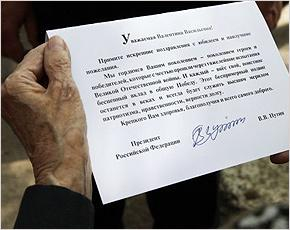 Уважаемая Валентина Васильевна!
Примите искренние поздравления с юбилеем и наилучшие
пожелания.
Мы гордимся Вашим поколением – поколением героев и
победителей, которые с честью прошли через тяжелейшие испытания
Великой Отечественной войны. И каждый – внёс свой, поистине
бесценный вклад в общую Победу. Этот беспримерный подвиг
останется в веках и всегда будет служить высшим мерилом
патриотизма, нравственности, верности долгу.
Крепкого Вам здоровья, благополучия и всего самого доброго.
Президент
Российской Федерации
В.В. Путин